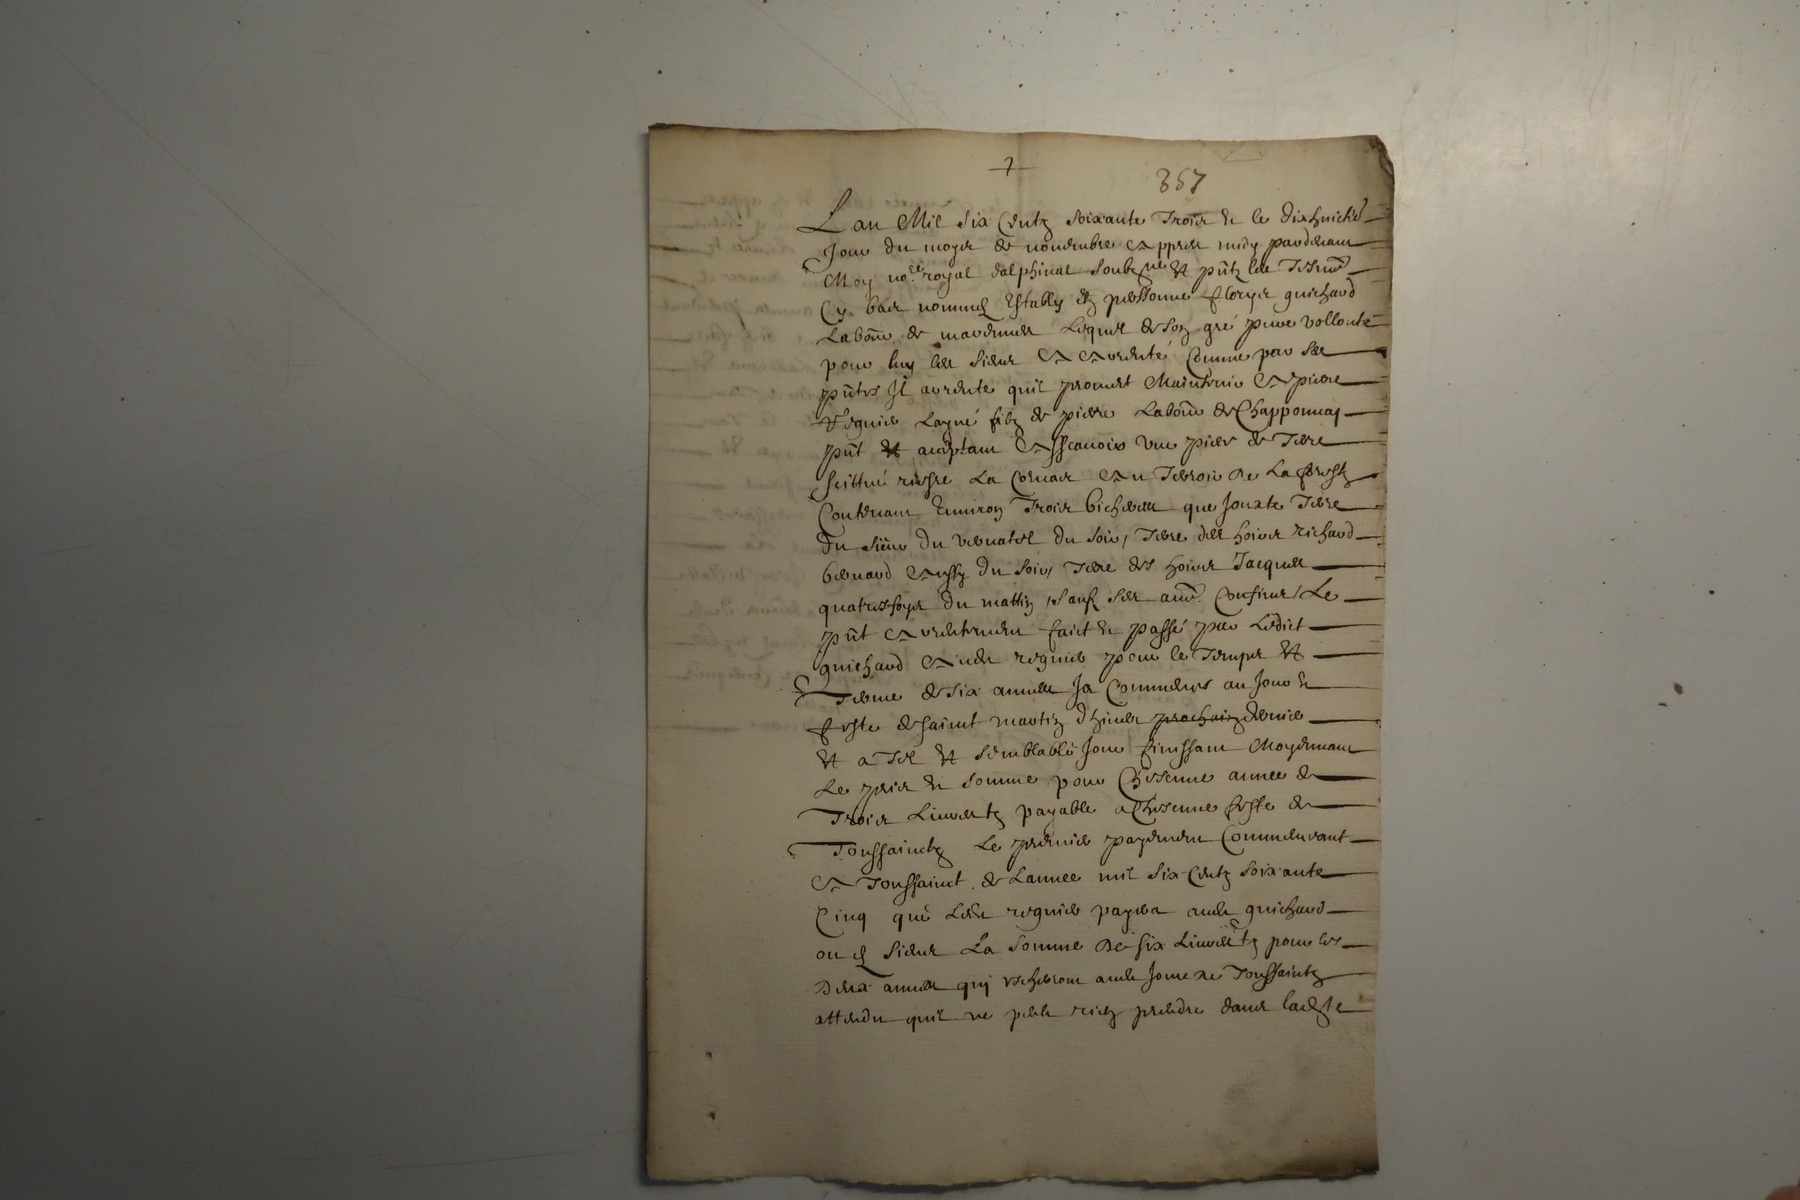 7
357
Lan Mil six Centz soixante Trois & le dixhuictie
Jour du moys de novembre appres midy pardevant
Moy no.re royal dalphinal soubzne et pntz les tesmo
Cy bas nommez estably en personne guichard
Labour de marennes Lequel de son gré pure vollonté
pour luy les siens a arrenté comme par ses
pntes Il arrente quil promest Maintenir A pierre
reguier Layné filz de pierre Labour de Chapponnay
pnt et acceptant Assçavoir une piece de Terre
scittué riere La Au Terroir de La
Contenant Environ Trois bicheres que Jouxte Terre
du sieur du du soir, Terre des hoirs richard
bernard Aussy du soir, Terre des hoirs Jacques
du mattin, sauf ses au.e Confins, Le
pnt Arrentement faict & passé par Ledict
guichard Aude reguier pour le Temps et
Terme de six annees Ja Commences au Jour &
feste de saint martin dhiver prochain dernier
et a Tel et semblable Jour finissant Moyennant
Le pris & somme pour Chescune annee de
Trois Livres tz payable a Chescune feste de
Toussainctz Le premier payement Commencant
A Toussainct de Lannee mil six Centz soixante
Cinq que Ledt reguier payera audt guichard
ou es siens La somme de six Livres tz pour les
deux annees qui escherront audt Jour de Toussainctz
attendu quil ne peult rien prendre dans ladte